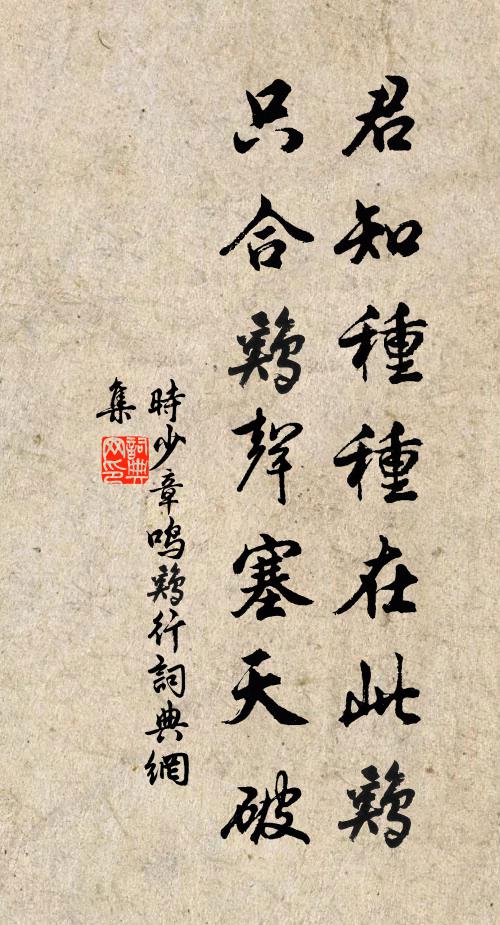 君知種種在此鷄
只合鷄聲塞天破
時少章鳴鷄行詞典網
集
詞典
网印